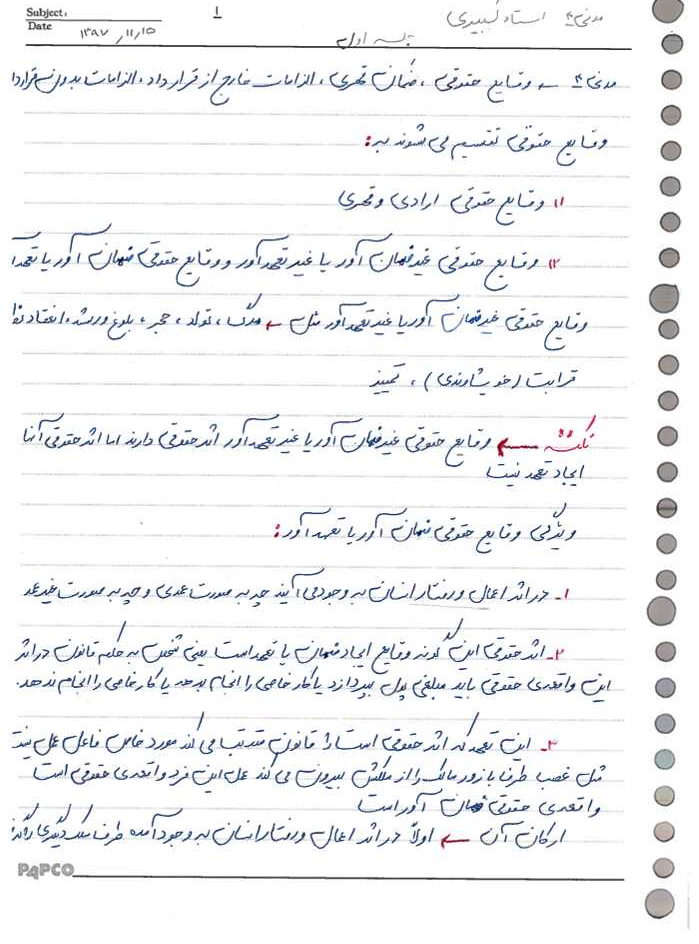 Subject:
Date ۱۳۹۷/۱۱/۱۵
۱
مدنی ۴ استاد
جلسه اول
مدنی ۴ ← وقایع حقوقی، ضمان قهری، الزامات خارج از قرارداد، الزامات بدون قراردا
وقایع حقوقی تقسیم می شوند به:
۱) وقایع حقوقی ارادی و قهری
۲) وقایع حقوقی غیرضمان آور یا غیر تعهدآور و وقایع حقوقی ضمان آور یا تعهدآ
وقایع حقوقی غیرضمان آور یا غیر تعهدآور مثل ← مرگ، تولد، حجر، بلوغ و رشد، انعقاد
قرابت (خویشاوندی)، تمییز
نکته ← وقایع حقوقی غیرضمان آور یا غیر تعهدآور اثر حقوقی دارند اما اثر حقوقی آنها
ایجاد تعهد نیست
ویژگی وقایع حقوقی ضمان آور یا تعهدآور:
۱- در اثر اعمال و رفتار انسان به وجود می آیند چه به صورت عمدی و چه به صورت غیر عمد
۲- اثر حقوقی این گونه وقایع ایجاد ضمان یا تعهد است یعنی شخص به حکم قانون در اثر
این واقعه ی حقوقی باید مبلغی پول بپردازد یا کار خاصی را انجام بدهد یا کار خاصی را انجام ندهد.
۳- این تعهد که اثر حقوقی است را قانون مترتب می کند مورد خاص فاعل عمل نیست
مثل غصب طرف با زور مالک را از ملکش بیرون می کند عمل این فرد واقعه ی حقوقی است
واقعه ی حقوقی ضمان آور است
ارکان آن ← اولاً در اثر اعمال و رفتار انسان به وجود آمده طرف ملک دیگری را
PAPCO